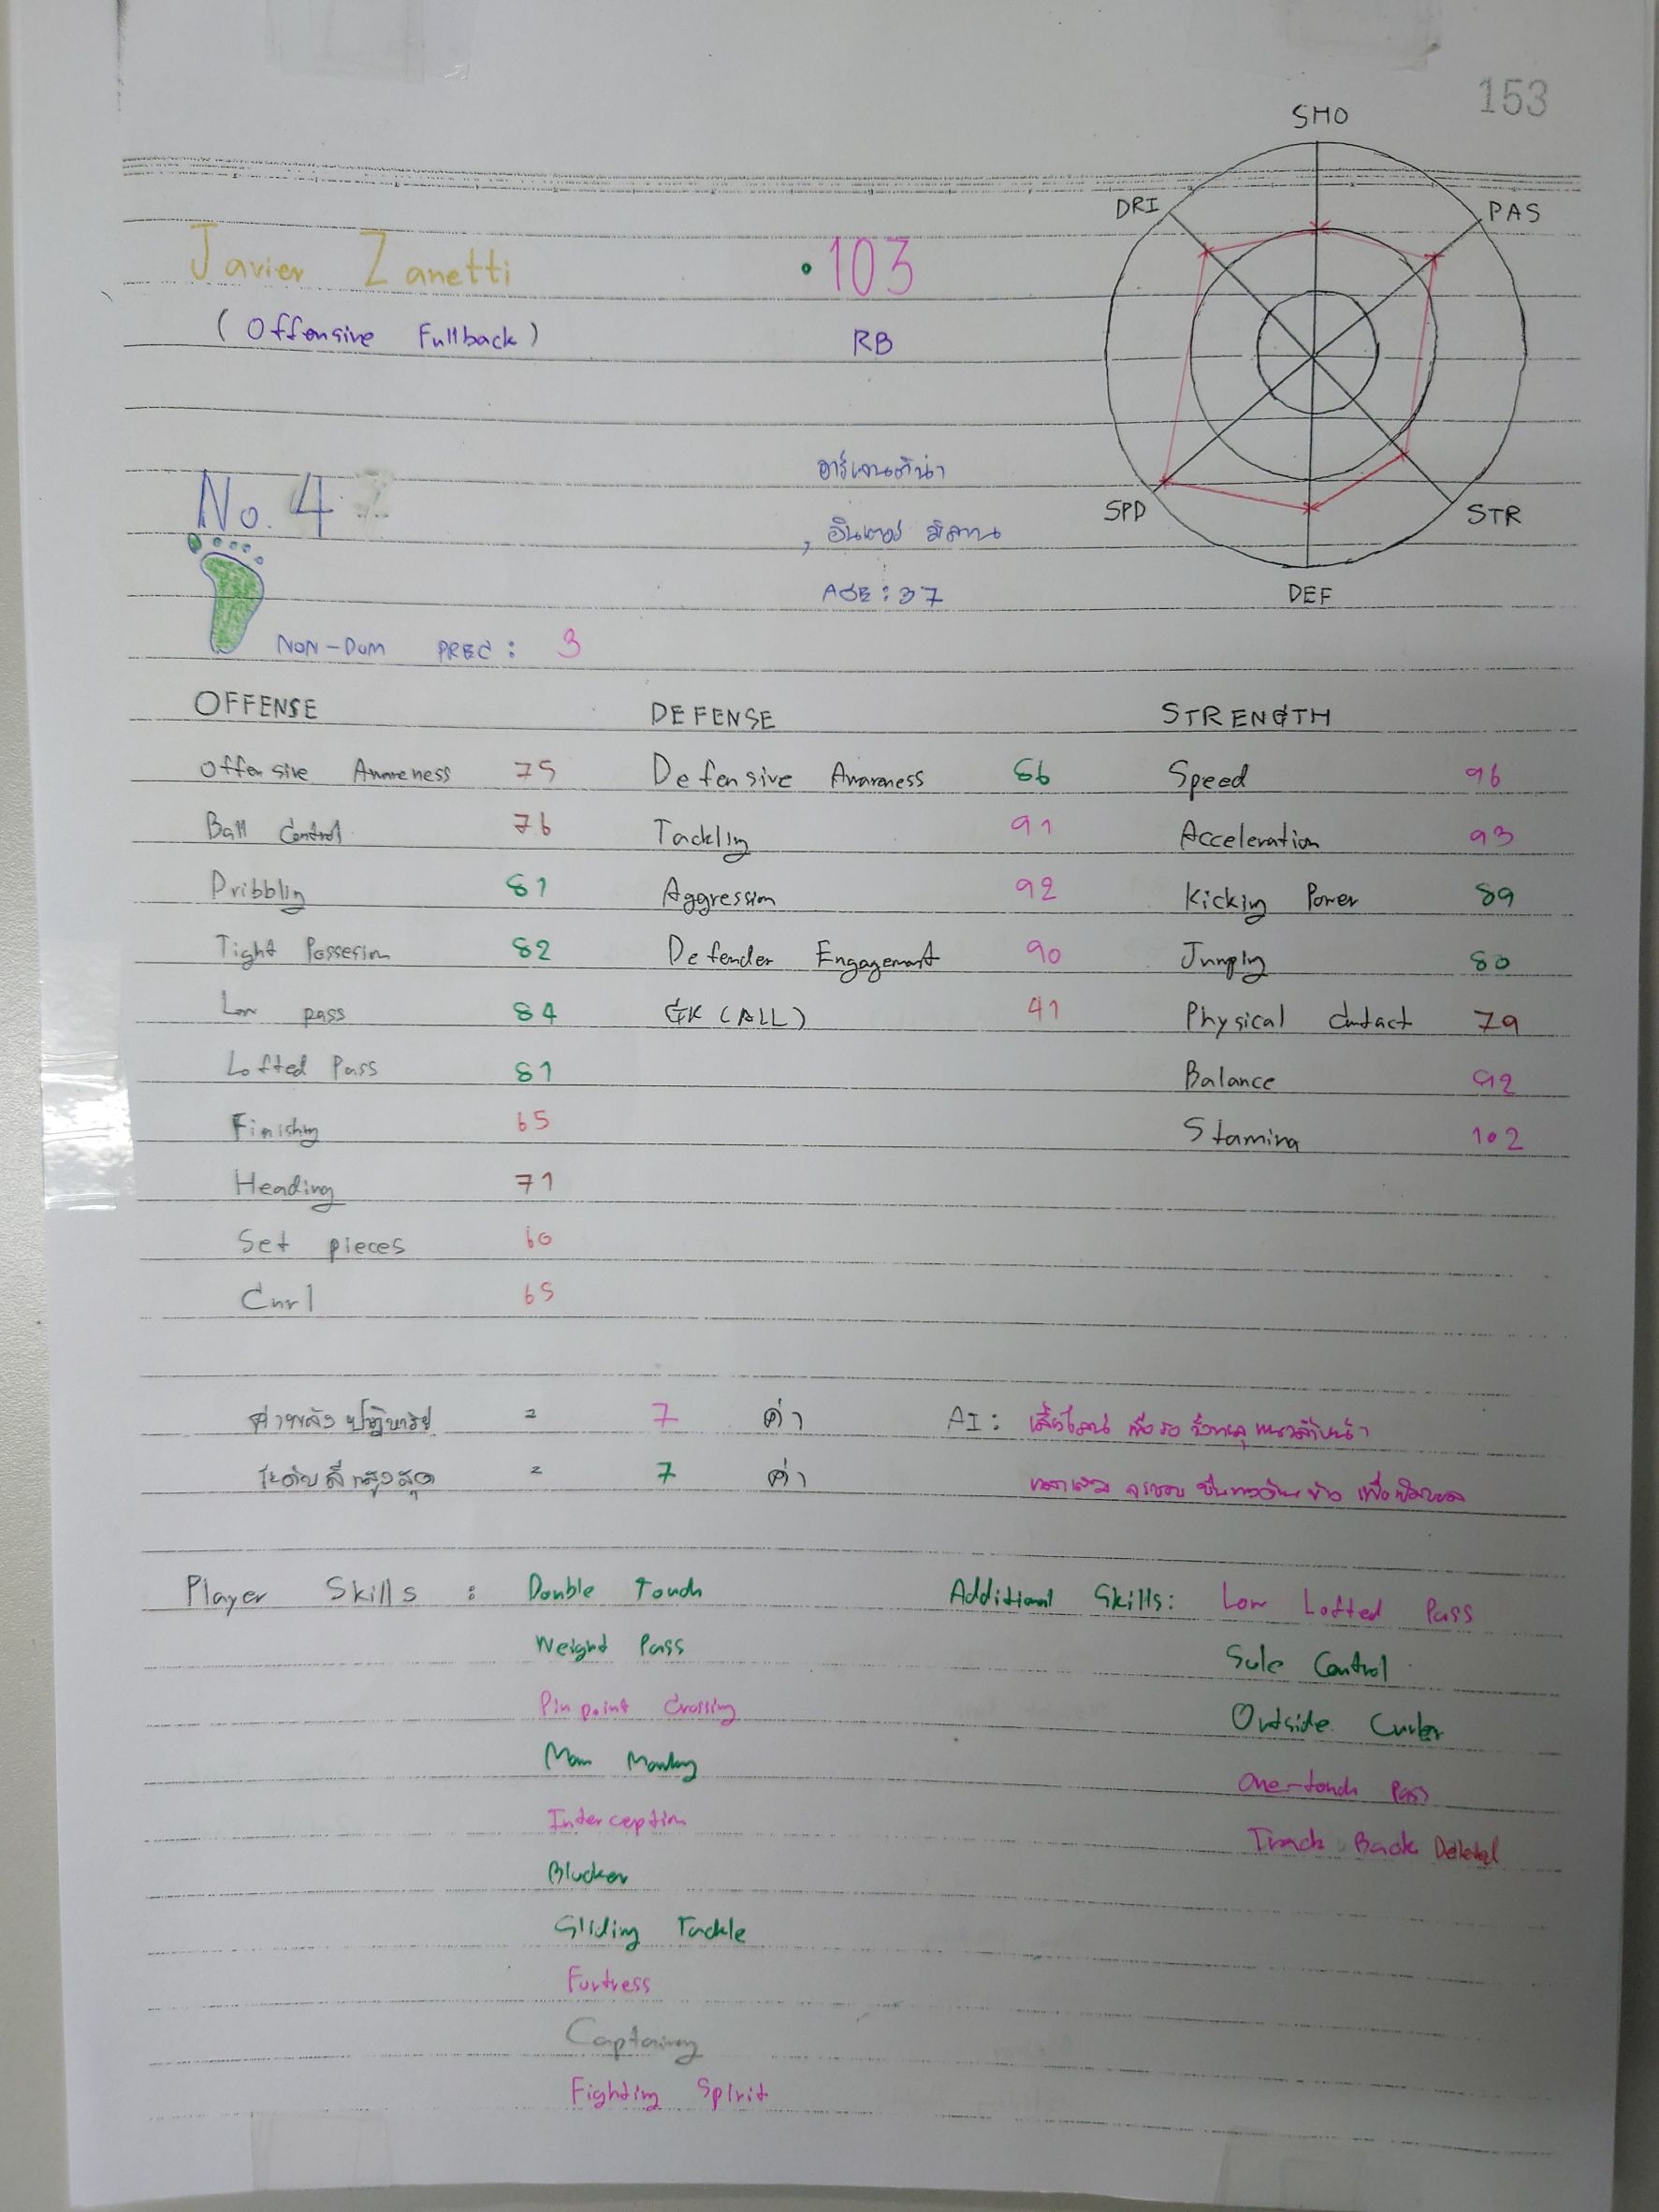 153
SHO
DRI
PAS
Javier Zanetti
103
(Offensive Fullback)
RB
No. 4
อาร์เจนติน่า
SPD
STR
, อินเตอร์ มิลาน
AGE : 37
DEF
NON-DOM PREC : 3
OFFENSE DEFENSE STRENGTH
Offensive Awareness 75 Defensive Awareness 86 Speed 96
Ball Control 76 Tackling 91 Acceleration 93
Dribbling 81 Aggression 92 Kicking Power 89
Tight Possesion 82 Defender Engagement 90 Jumping 80
Low pass 84 GK (ALL) 41 Physical Contact 79
Lofted Pass 81 Balance 92
Finishing 65 Stamina 102
Heading 71
Set pieces 60
Curl 65
ค่าพลัง ปฏิหาริย์ = 7 ค่า AI :
ระดับสีสูงสุด = 7 ค่า
Player Skills : Double Touch Additional Skills : Low Lofted Pass
Weight Pass Sole Control
Pin point Crossing Outside Curler
Man Marking One-touch Pass
Interception Track Back Deleted
Blocker
Sliding Tackle
Fortress
Captaincy
Fighting Spirit